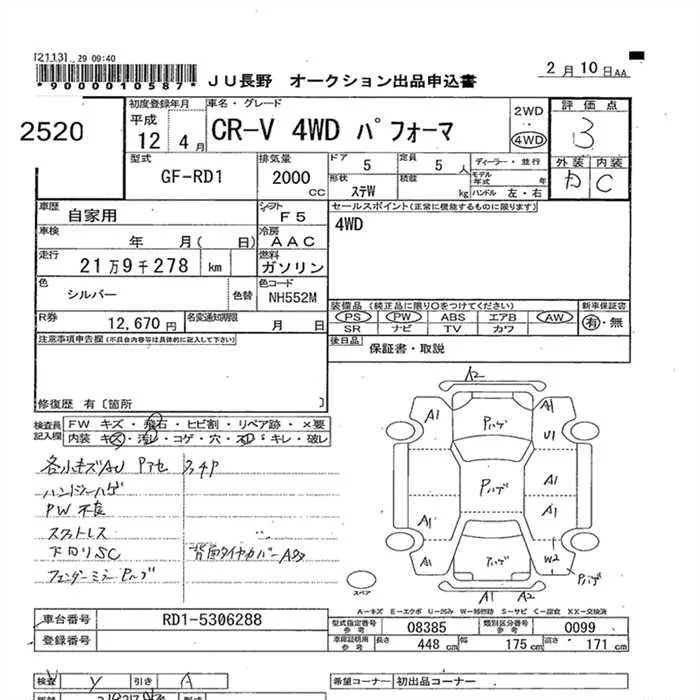 [2113] 29 09:40
*9000010587*
JU長野 オークション出品申込書
2月10日AA
2520
初度登録年月
平成
12 4月
車名・グレード
CR-V 4WD パフォーマ
2WD
4WD
評価点
3
外装 内装
C
型式
GF-RD1
排気量
2000 CC
ドア 5
定員 5 人
形状 ステW
積載 kg
ディーラー・並行
モデル年式 年式
ハンドル 左・右
車歴 自家用
シフト F5
セールスポイント(正常に機能するものに限ります)
4WD
車検 年 月( 日)
冷房 AAC
走行 21万9千278 km
燃料 ガソリン
色 シルバー
色替
色コード NH552M
装備品(純正品に限り○をつけてください)
PS PW ABS エアB AW
SR ナビ TV カワ
新車保証書
有・無
R券 12,670円
名変通知期限 月 日
後日品 保証書・取説
注意事項申告欄(不具合内容等は具体的に記入して下さい)
修復歴 有〔箇所 〕
検査員記入欄
FW キズ・飛石・ヒビ割・リペア跡・×要
内装 キズ・汚れ・コゲ・穴・スレ・キレ・破レ
各小キズAU
ハンドルハゲ
PW不良
下回りSC
背面タイヤカバーAあ
フェンダーミラーPハゲ
A2
A1 Pハゲ A1
U1
Pハゲ A1
A1 A1
A1 Pハゲ W2
Pハゲ
A1 A2
スペア
A-キズ E-エクボ U-凹み W-補修跡 S-サビ C-腐食 XX-交換済
車台番号 RD1-5306288
登録番号
型式指定番号 参考 08385
類別区分番号 参考 0099
車庫証明用 参考 長さ 448cm 幅 175cm 高さ 171cm
検査 Y 引き A
希望コーナー 初出品コーナー